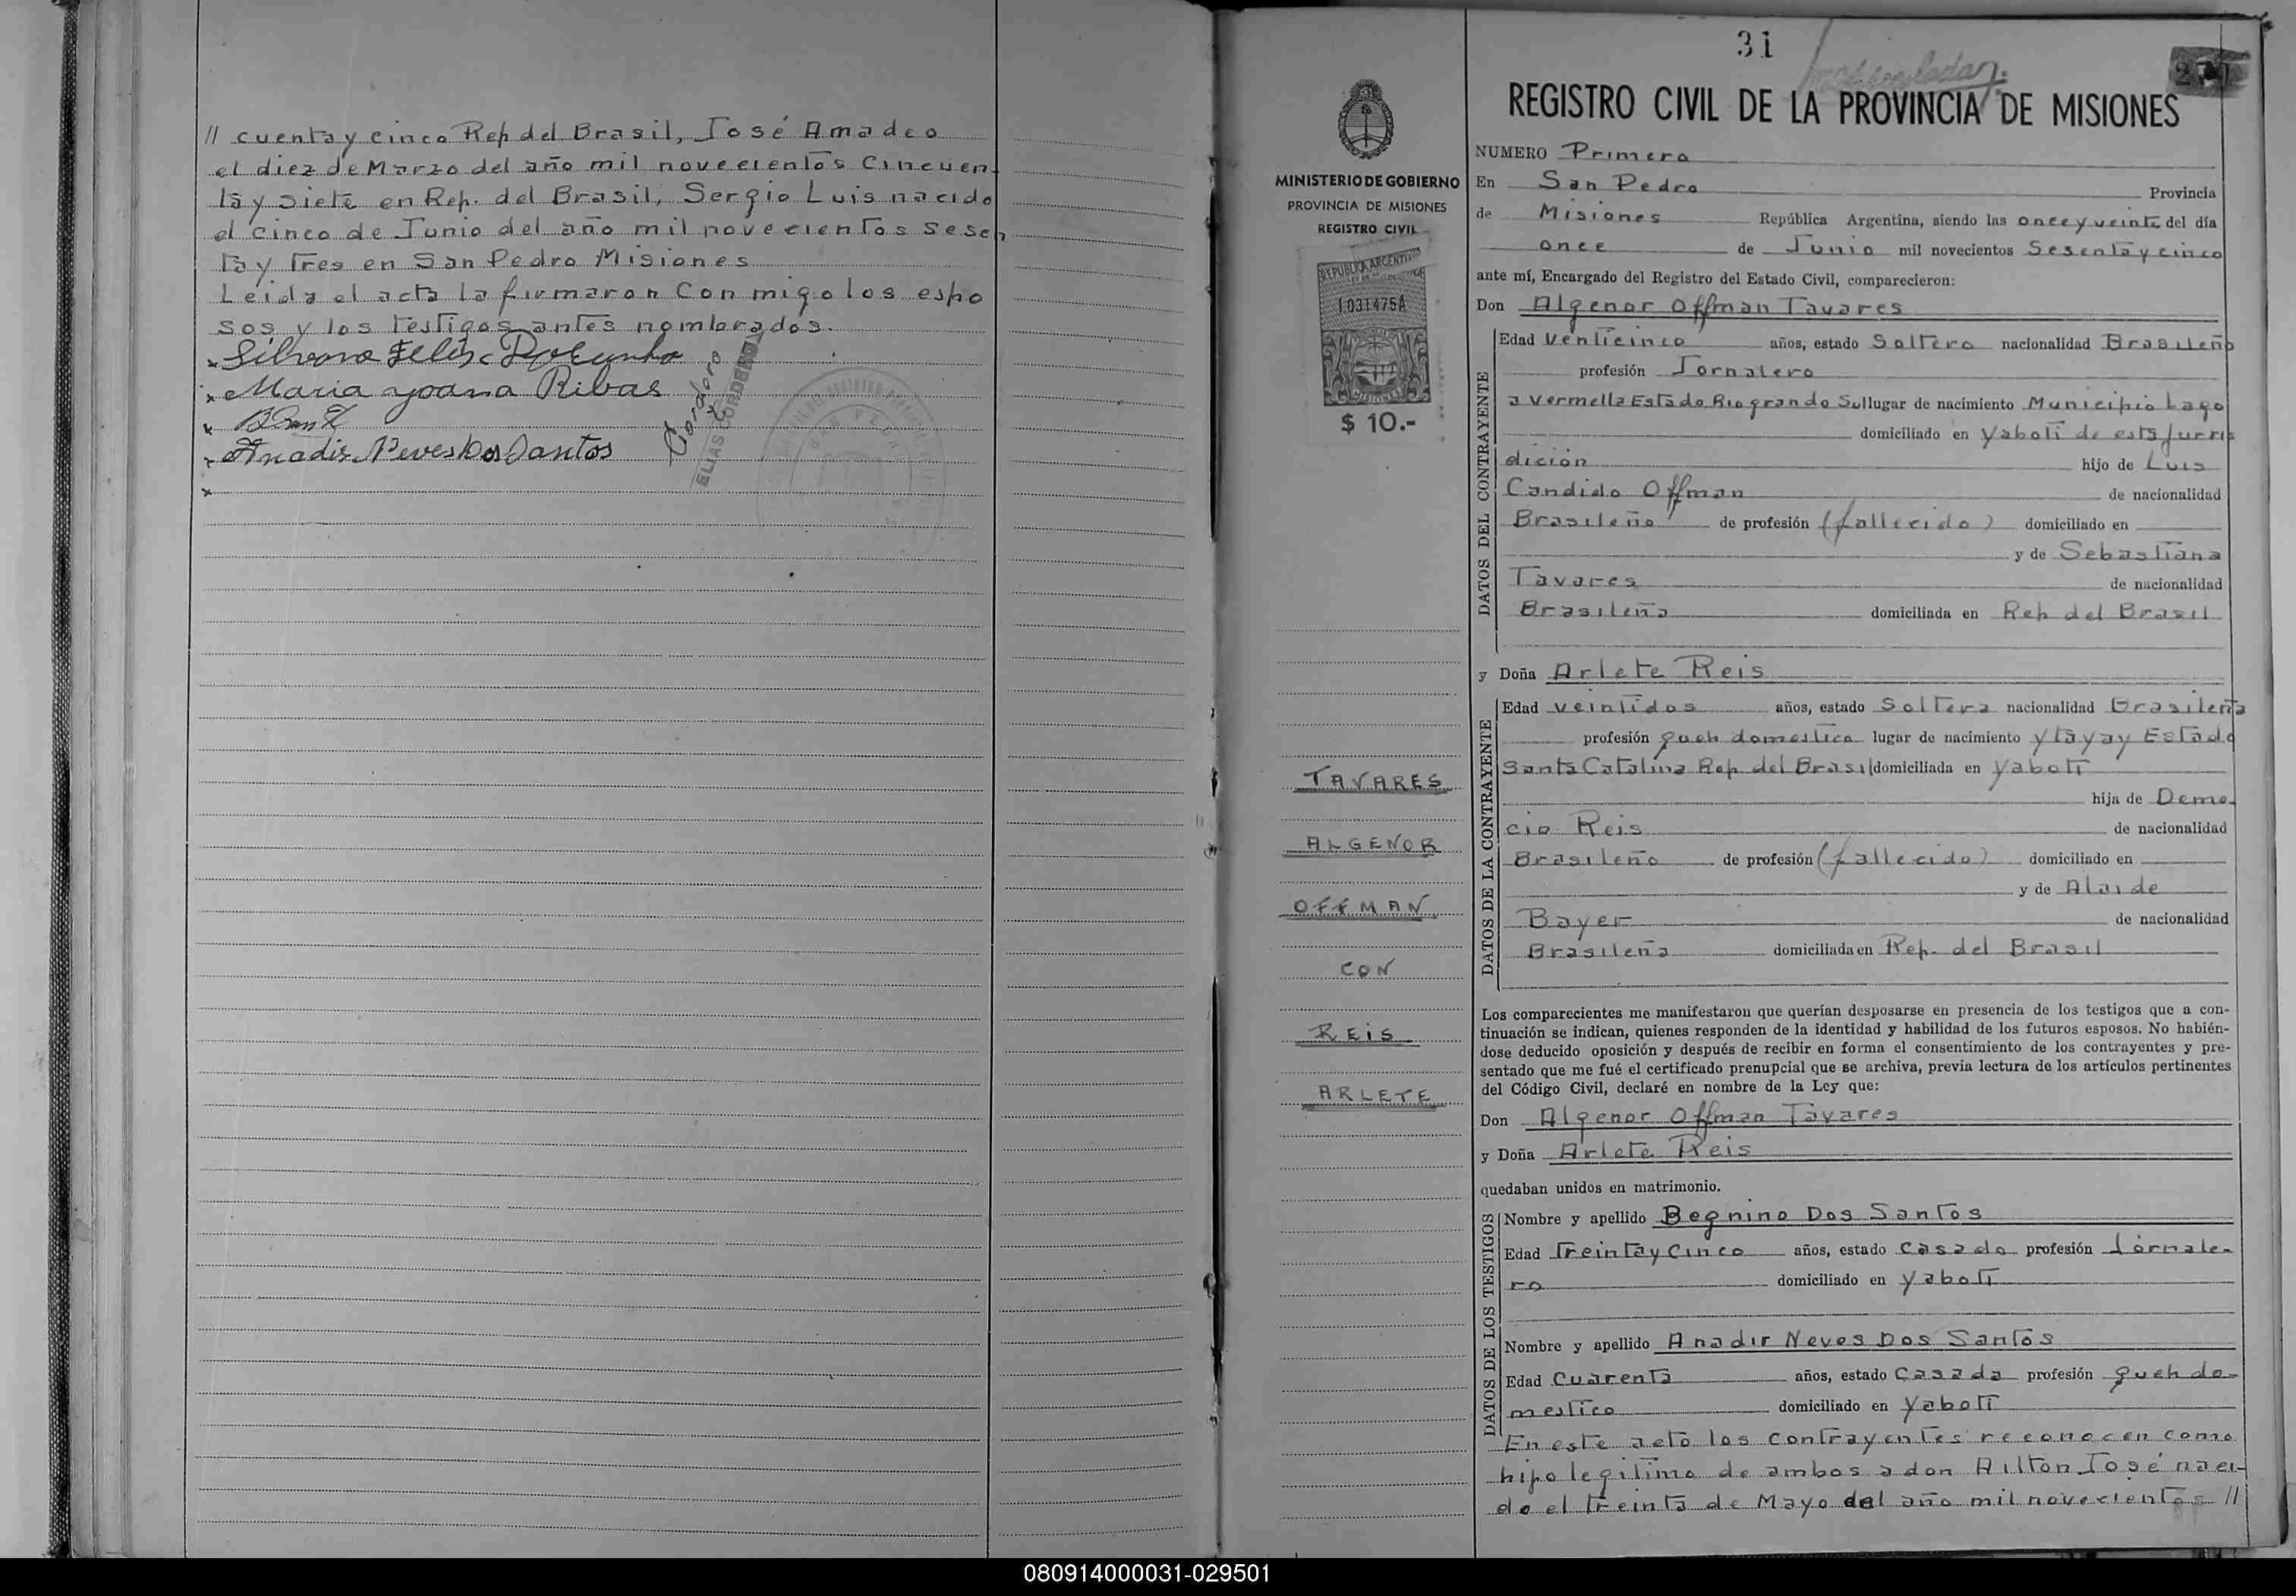 // cuenta y cinco Rep del Brasil, José Amadeo
el diez de Marzo del año mil novecientos Cincuen-
ta y siete en Rep. del Brasil, Sergio Luis nacido
el cinco de Junio del año mil novecientos sesen
ta y tres en San Pedro Misiones
Leida el acta la firmaron Con migo los espo
sos y los testigos antes nombrados.
x Silvano Felix
x Maria yoana Ribas
x
x Anadir Neves Dos Santos
x
Cordero
ELIAS CORDERO
31
REGISTRO CIVIL DE LA PROVINCIA DE MISIONES
MINISTERIO DE GOBIERNO
PROVINCIA DE MISIONES
REGISTRO CIVIL
REPUBLICA ARGENTINA
1031475A
MISIONES
$ 10.-
TAVARES
ALGENOR
OFFMAN
CON
REIS
ARLETE
NUMERO Primero
En San Pedro Provincia
de Misiones República Argentina, siendo las once y veinte del día
once de Junio mil novecientos Sesenta y cinco
ante mí, Encargado del Registro del Estado Civil, comparecieron:
Don Algenor Offman Tavares
DATOS DEL CONTRAYENTE
Edad Venticinco años, estado Soltero nacionalidad Brasileño
profesión Jornalero
a Vermella Estado Rio grando Sul lugar de nacimiento Municipio Lago
domiciliado en Yaboti de esta Jurris
dición hijo de Luis
Candido Offman de nacionalidad
Brasileño de profesión (fallecido) domiciliado en
y de Sebastiana
Tavares de nacionalidad
Brasileña domiciliada en Rep del Brasil
y Doña Arlete Reis
DATOS DE LA CONTRAYENTE
Edad veintidos años, estado Soltera nacionalidad Brasileña
profesión queh domestico lugar de nacimiento ytayay Estado
Santa Catalina Rep del Brasil domiciliada en Yaboti
hija de Demo-
cio Reis de nacionalidad
Brasileño de profesión (fallecido) domiciliado en
y de Alaide
Bayer de nacionalidad
Brasileña domiciliada en Rep. del Brasil
Los comparecientes me manifestaron que querían desposarse en presencia de los testigos que a con-
tinuación se indican, quienes responden de la identidad y habilidad de los futuros esposos. No habién-
dose deducido oposición y después de recibir en forma el consentimiento de los contrayentes y pre-
sentado que me fué el certificado prenupcial que se archiva, previa lectura de los artículos pertinentes
del Código Civil, declaré en nombre de la Ley que:
Don Algenor Offman Tavares
y Doña Arlete Reis
quedaban unidos en matrimonio.
DATOS DE LOS TESTIGOS
Nombre y apellido Begnino Dos Santos
Edad Treinta y Cinco años, estado Casado profesión Jornale-
ro domiciliado en Yaboti
Nombre y apellido Anadir Neves Dos Santos
Edad Cuarenta años, estado Casada profesión queh do-
mestico domiciliado en Yaboti
En este acto los contrayentes reconocen como
hijo legitimo de ambos a don Ailton José naci-
do el treinta de Mayo del año mil novecientos //
080914000031-029501